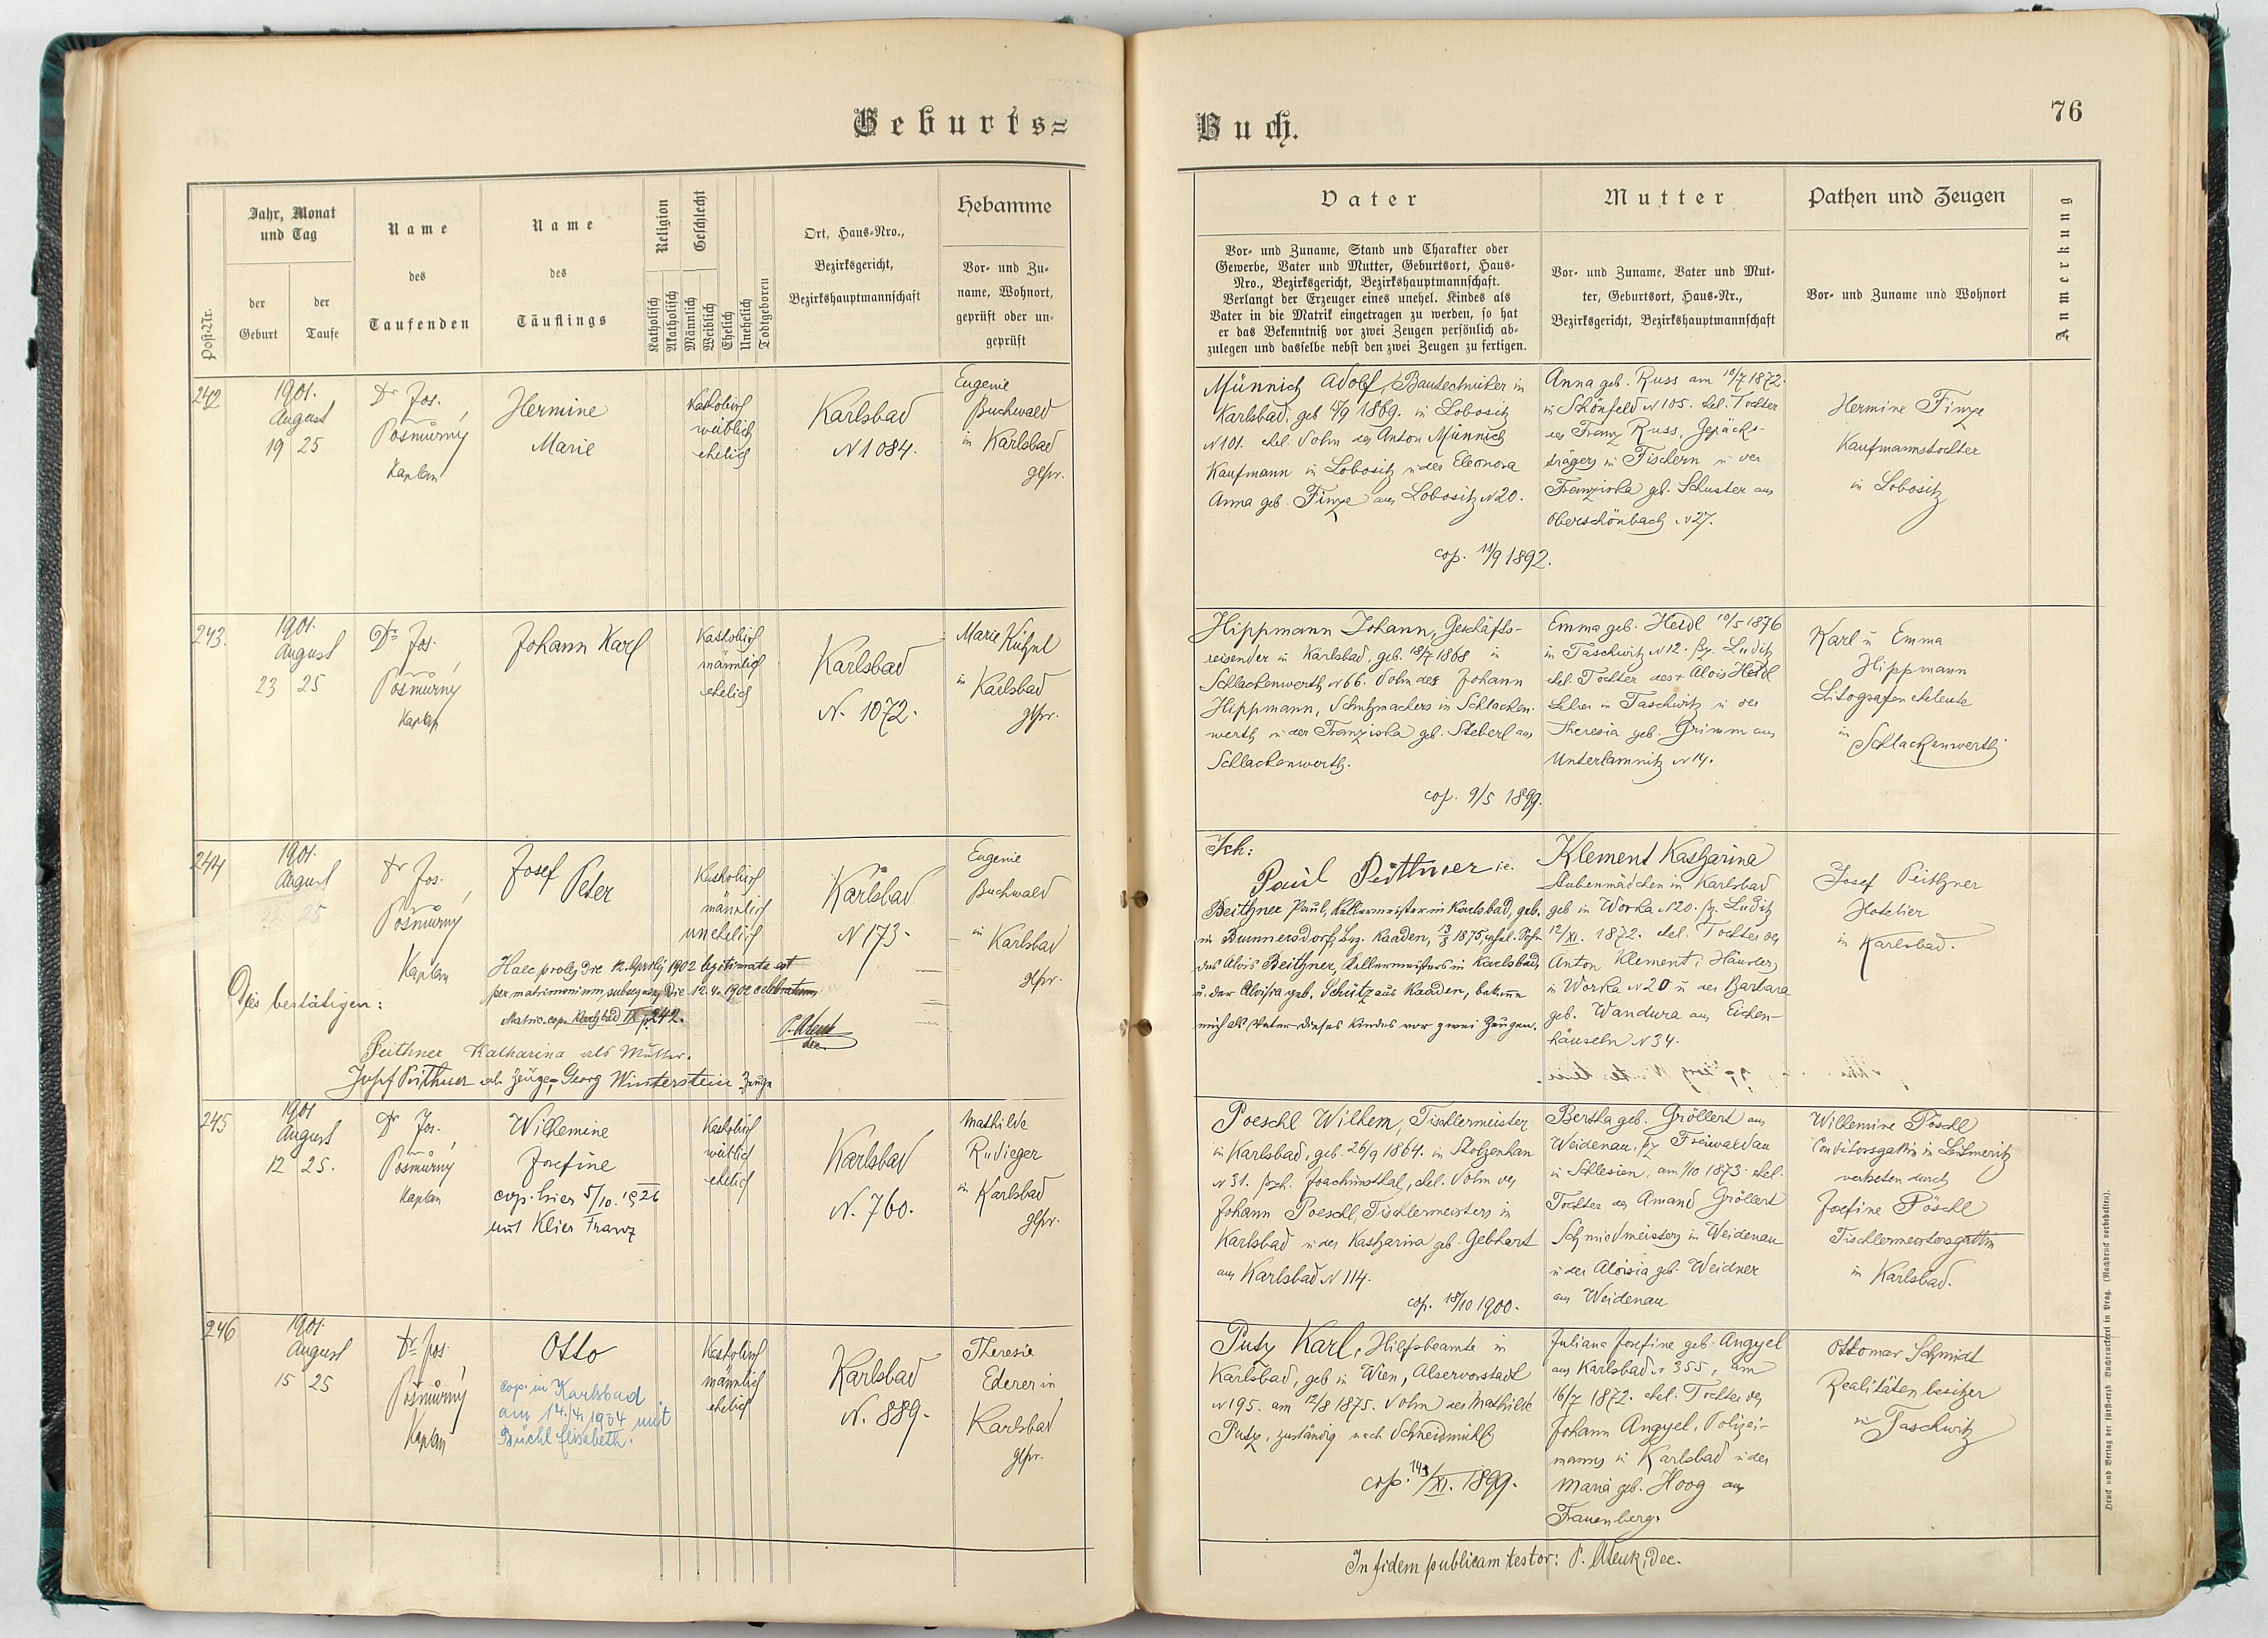 Geburts=
Buch.
76
Post-Nr.
Jahr, Monat
und Tag
der
Geburt
der
Taufe
Name
des
Taufenden
Name
des
Täuflings
Religion
Katholisch
Akatholisch
Geschlecht
Männlich
Weiblich
Ehelich
Unehelich
Todtgeboren
Ort, Haus-Nro.,
Bezirksgericht,
Bezirkshauptmannschaft
Hebamme
Vor- und Zu-
name, Wohnort,
geprüft oder un-
geprüft
Vater
Vor- und Zuname, Stand und Charakter oder
Gewerbe, Vater und Mutter, Geburtsort, Haus-
Nro., Bezirksgericht, Bezirkshauptmannschaft.
Verlangt der Erzeuger eines unehel. Kindes als
Vater in die Matrik eingetragen zu werden, so hat
er das Bekenntniß vor zwei Zeugen persönlich ab-
zulegen und dasselbe nebst den zwei Zeugen zu fertigen.
Mutter
Vor- und Zuname, Vater und Mut-
ter, Geburtsort, Haus-Nr.,
Bezirksgericht, Bezirkshauptmannschaft
Pathen und Zeugen
Vor- und Zuname und Wohnort
Anmerkung
242
1901.
August
19 25
Dr Jos.
Pošmůrný
Kaplan
Hermine
Marie
Katholisch
weiblich
ehelich
Karlsbad
N 1084.
Eugenie
Buchwald
in Karlsbad
gepr.
Münnich Adolf, Bautechniker in
Karlsbad, geb 15/9 1869. in Lobositz
N 101. ehel. Sohn des Anton Münnich
Kaufmann in Lobositz u der Eleonora
Anna geb. Finze aus Lobositz N 20.
cop. 11/9 1892.
Anna geb. Russ am 10/7 1872.
in Schönfeld N 105. ehel. Tochter
des Franz Russ, Gepäcks-
trägers in Fischern u der
Franziska geb. Schuster aus
Oberschönbach N 27.
Hermine Finze
Kaufmannstochter
in Lobositz
243.
1901.
August
23 25
Dr Jos.
Pošmůrný
Kaplan
Johann Karl
Katholisch
männlich
ehelich
Karlsbad
N. 1072.
Marie Kühnl
in Karlsbad
gepr.
Hippmann Johann, Geschäfts-
reisender in Karlsbad, geb. 18/7 1868 in
Schlackenwerth N 66. Sohn des Johann
Hippmann, Schuhmachers in Schlacken-
werth u der Franziska geb. Steberl aus
Schlackenwerth.
cop. 9/5 1899.
Emma geb. Heidl 10/5 1876
in Taschwitz N 12. Bz. Luditz
ehel. Tochter des + Alois Heidl
Lehrer in Taschwitz u der
Theresia geb. Grimm aus
Unterlamnitz N 14.
Karl u Emma
Hippmann
Litografeneheleute
in Schlackenwerth
244
1901.
August
25
Dr Jos.
Pošmůrný
Kaplan
Josef
Peter
Katholisch
männlich
unehelich
Karlsbad
N 173.
Eugenie
Buchwald
in Karlsbad
gepr.
Haec proles die 12. Aprilis 1902 legitimata est
per matrimonium subsequens die 12.4. 1902 celebratum
Matric. cop. Karlsbad IX p. 242.
Dies bestätigen:
Peithner Katharina als Mutter.
Josef Peithner als Zeuge, Georg Winterstein Zeuge
Ich:
Paul Peithner
Beithner Paul, Kellermeister in Karlsbad, geb.
in Bunnersdorf, Bzg. Kaaden, 13/8 1875, ehel. Sohn
des Alois Beithner, Kellermeisters in Karlsbad,
u. der Aloisia geb. Schütz aus Kaaden, bekenne
mich als Vater dieses Kindes vor zwei Zeugen.
Klement Katharina
Stubenmädchen in Karlsbad
geb in Worka N 20. Bz. Luditz
12/XI. 1872. ehel. Tochter des
Anton Klement, Häusler,
in Worka N 20 u der Barbara
geb. Wandura aus Eichen-
häuseln N 34.
Josef Peithner
Hotelier
in Karlsbad.
245
1901
August
12 25.
Dr Jos.
Pošmůrný
Kaplan
Wilhemine
Josefine
cop. hier 5/10. 1926
mit Klier Franz
Katholisch
weiblich
ehelich
Karlsbad
N. 760.
Mathilde
Rudieger
in Karlsbad
gepr.
Poeschl Wilhem, Tischlermeister
in Karlsbad, geb. 26/9 1864. in Stolzenhan
N 31. Bzh. Joachimsthal, ehel. Sohn des
Johann Poeschl, Tischlermeisters in
Karlsbad u der Katharina geb. Gebhart
aus Karlsbad N 114.
cop. 18/10 1900.
Bertha geb. Gröllert aus
Weidenau, Bz Freiwaldau
in Schlesien, am 1/10 1873. ehel.
Tochter des Amand Gröllert
Schmiedmeisters in Weidenau
u der Aloisia geb. Weidner
aus Weidenau
Wilhemine Pöschl
Conditorsgattin in Leitmeritz
vertreten durch
Josefine Pöschl
Tischlermeistersgattin
in Karlsbad.
246
1901.
August
15 25
Dr Jos.
Pošmůrný
Kaplan
Otto
cop. in Karlsbad
am 14./4. 1934 mit
Büchl Elisabeth.
Katholisch
männlich
ehelich
Karlsbad
N. 889.
Theresie
Ederer in
Karlsbad
gepr.
Putz Karl, Hilfsbeamte in
Karlsbad, geb in Wien, Alservorstadt
N 195. am 12/8 1875. Sohn der Mathilde
Putz, zuständig nach Schneidmühl
cop. 14/XI. 1899.
Juliana Josefine geb. Angyel
aus Karlsbad N 355, am
16/7 1872. ehel. Tochter des
Johann Angyel, Polizei-
manns in Karlsbad u der
Maria geb. Hoog aus
Frauenberg.
Ottomar Schmidt
Realitätenbesitzer
in Taschwitz
In fidem publicam testor: P. Dec.
Druck und Verlag der fürsterzb. Buchdruckerei in Prag. (Nachdruck vorbehalten).